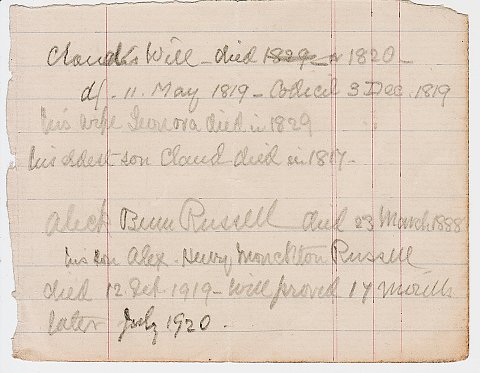 Claud's Will - died 1829 or 1820 -
df. 11. May 1819 - Codicil 3 Dec. 1819
his wife Leonora died in 1829
his eldest son Claud died in 1817 -
Aleck Russell died 23 March 1888
his son Alex. Henry Monckton Russell
died 12 1919 - Will proved 17 months
later July 1920.